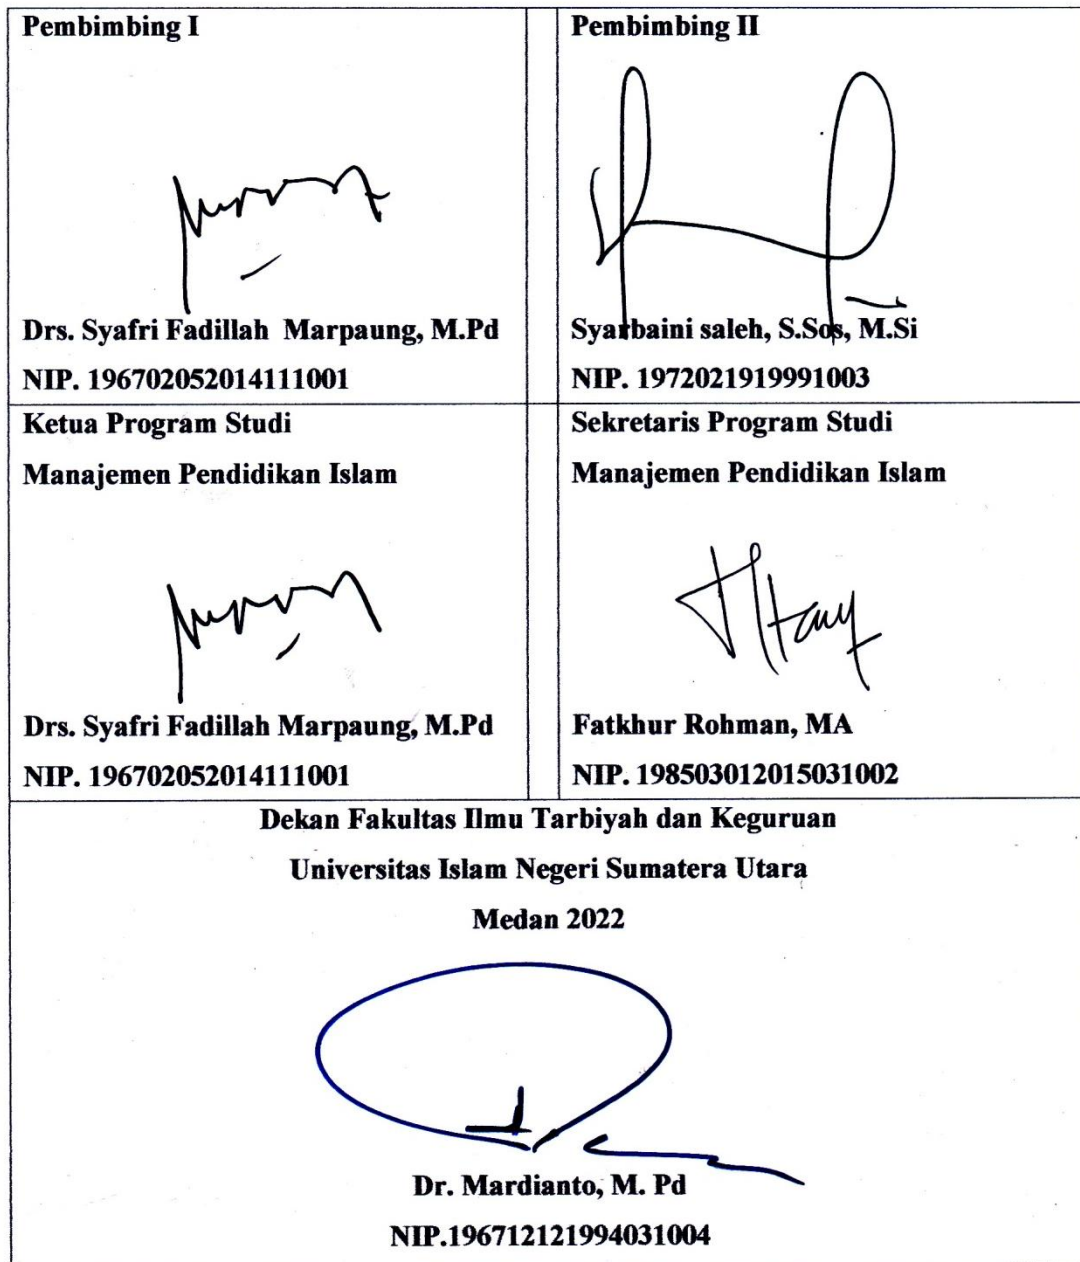 Pembimbing I
Drs. Syafri Fadillah Marpaung, M.Pd
NIP. 196702052014111001
Pembimbing II
Syarbaini saleh, S.Sos, M.Si
NIP. 1972021919991003
Ketua Program Studi
Manajemen Pendidikan Islam
Drs. Syafri Fadillah Marpaung, M.Pd
NIP. 196702052014111001
Sekretaris Program Studi
Manajemen Pendidikan Islam
Fatkhur Rohman, MA
NIP. 198503012015031002
Dekan Fakultas Ilmu Tarbiyah dan Keguruan
Universitas Islam Negeri Sumatera Utara
Medan 2022
Dr. Mardianto, M. Pd
NIP.196712121994031004